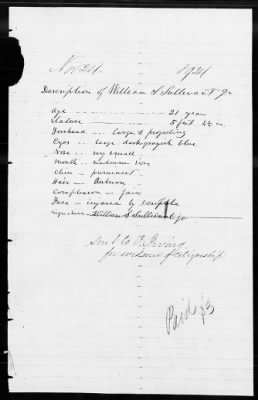 Nov 24.
Description of William S Sullivant Jr
Age 21 years
Stature 5 feet in
Forehead -- large & projecting
Eyes -- large dark greyish blue
Nose -- very small
Mouth -- medium size
Chin -- prominent
Hair -- Auburn
Complexion -- fair
Face -- injured by
Signature William S Sullivant Jr
Sent to
for evidence of citizenship
Paid